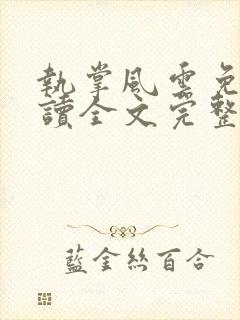 執掌風雲免
讀全文完整
藍金絲百合